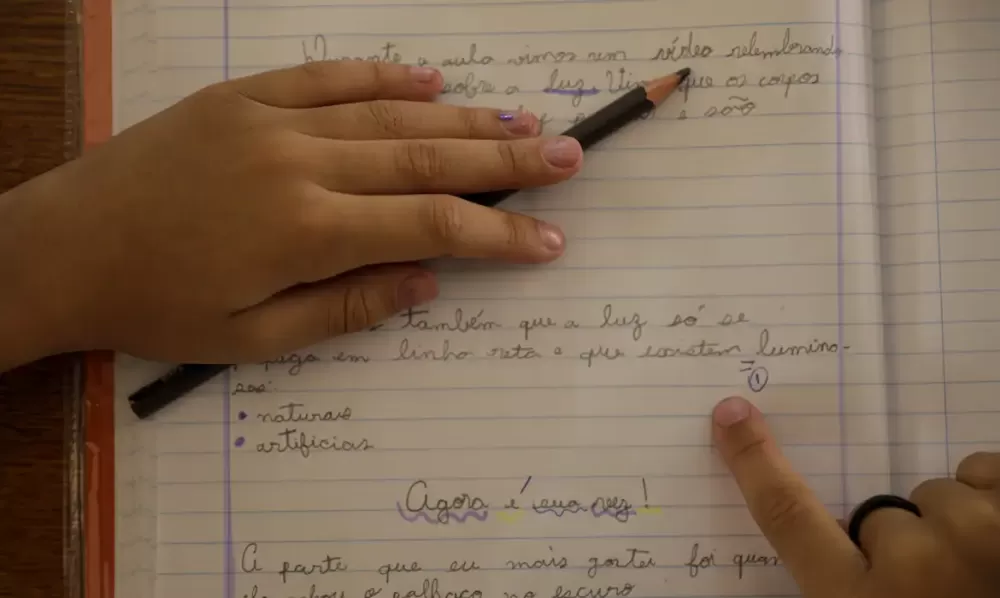 Durante a aula vimos um vídeo relembrando
sobre a luz. que os corpos
e são
também que a luz só se
em linha reta e que existem lumino-
sas:
① 
• naturais
• artificias
Agora é sua vez!
A parte que eu mais gostei foi quan
o palhaço no escuro